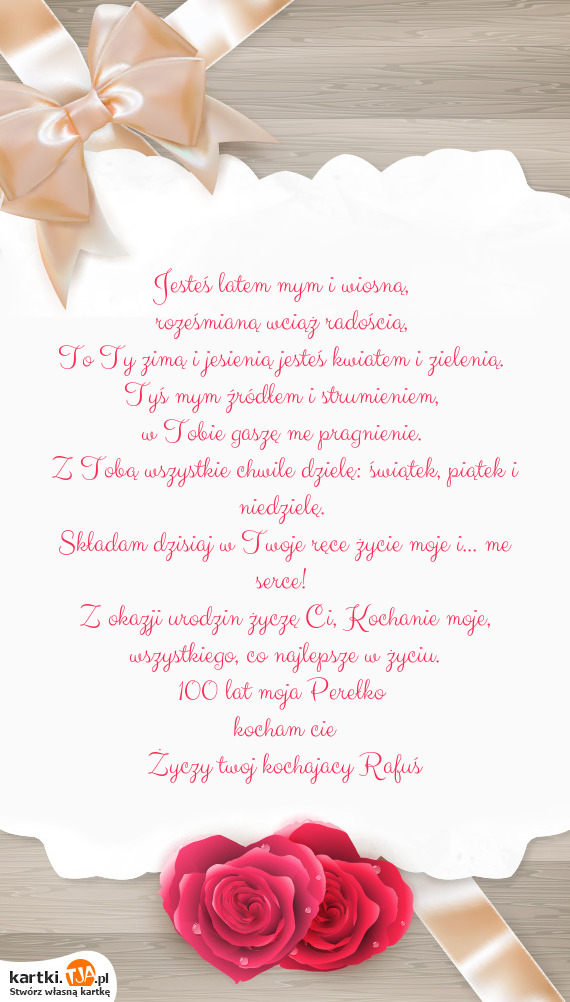 Jesteś latem mym i wiosną,
roześmianą wciąż radością,
To Ty zimą i jesienią jesteś kwiatem i zielenią.
Tyś mym źródłem i strumieniem,
w Tobie gaszę me pragnienie.
Z Tobą wszystkie chwile dzielę: świątek, piątek i
niedzielę.
Składam dzisiaj w Twoje ręce życie moje i... me
serce!
Z okazji urodzin życzę Ci, Kochanie moje,
wszystkiego, co najlepsze w życiu.
100 lat moja Perełko
kocham cie
Życzy twoj kochajacy Rafuś
kartki.TJA.pl
Stwórz własną kartkę